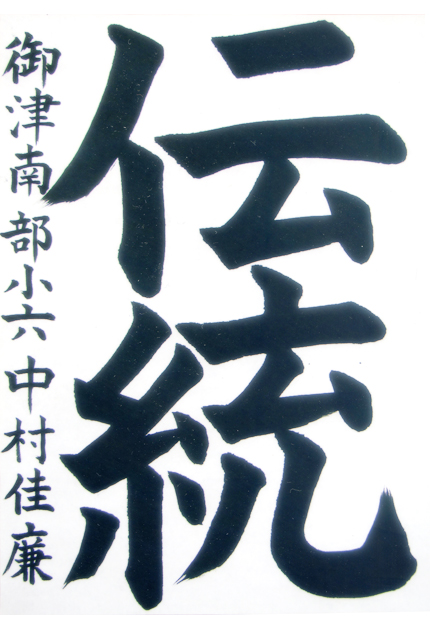 伝統
御津南部小六中村佳廉